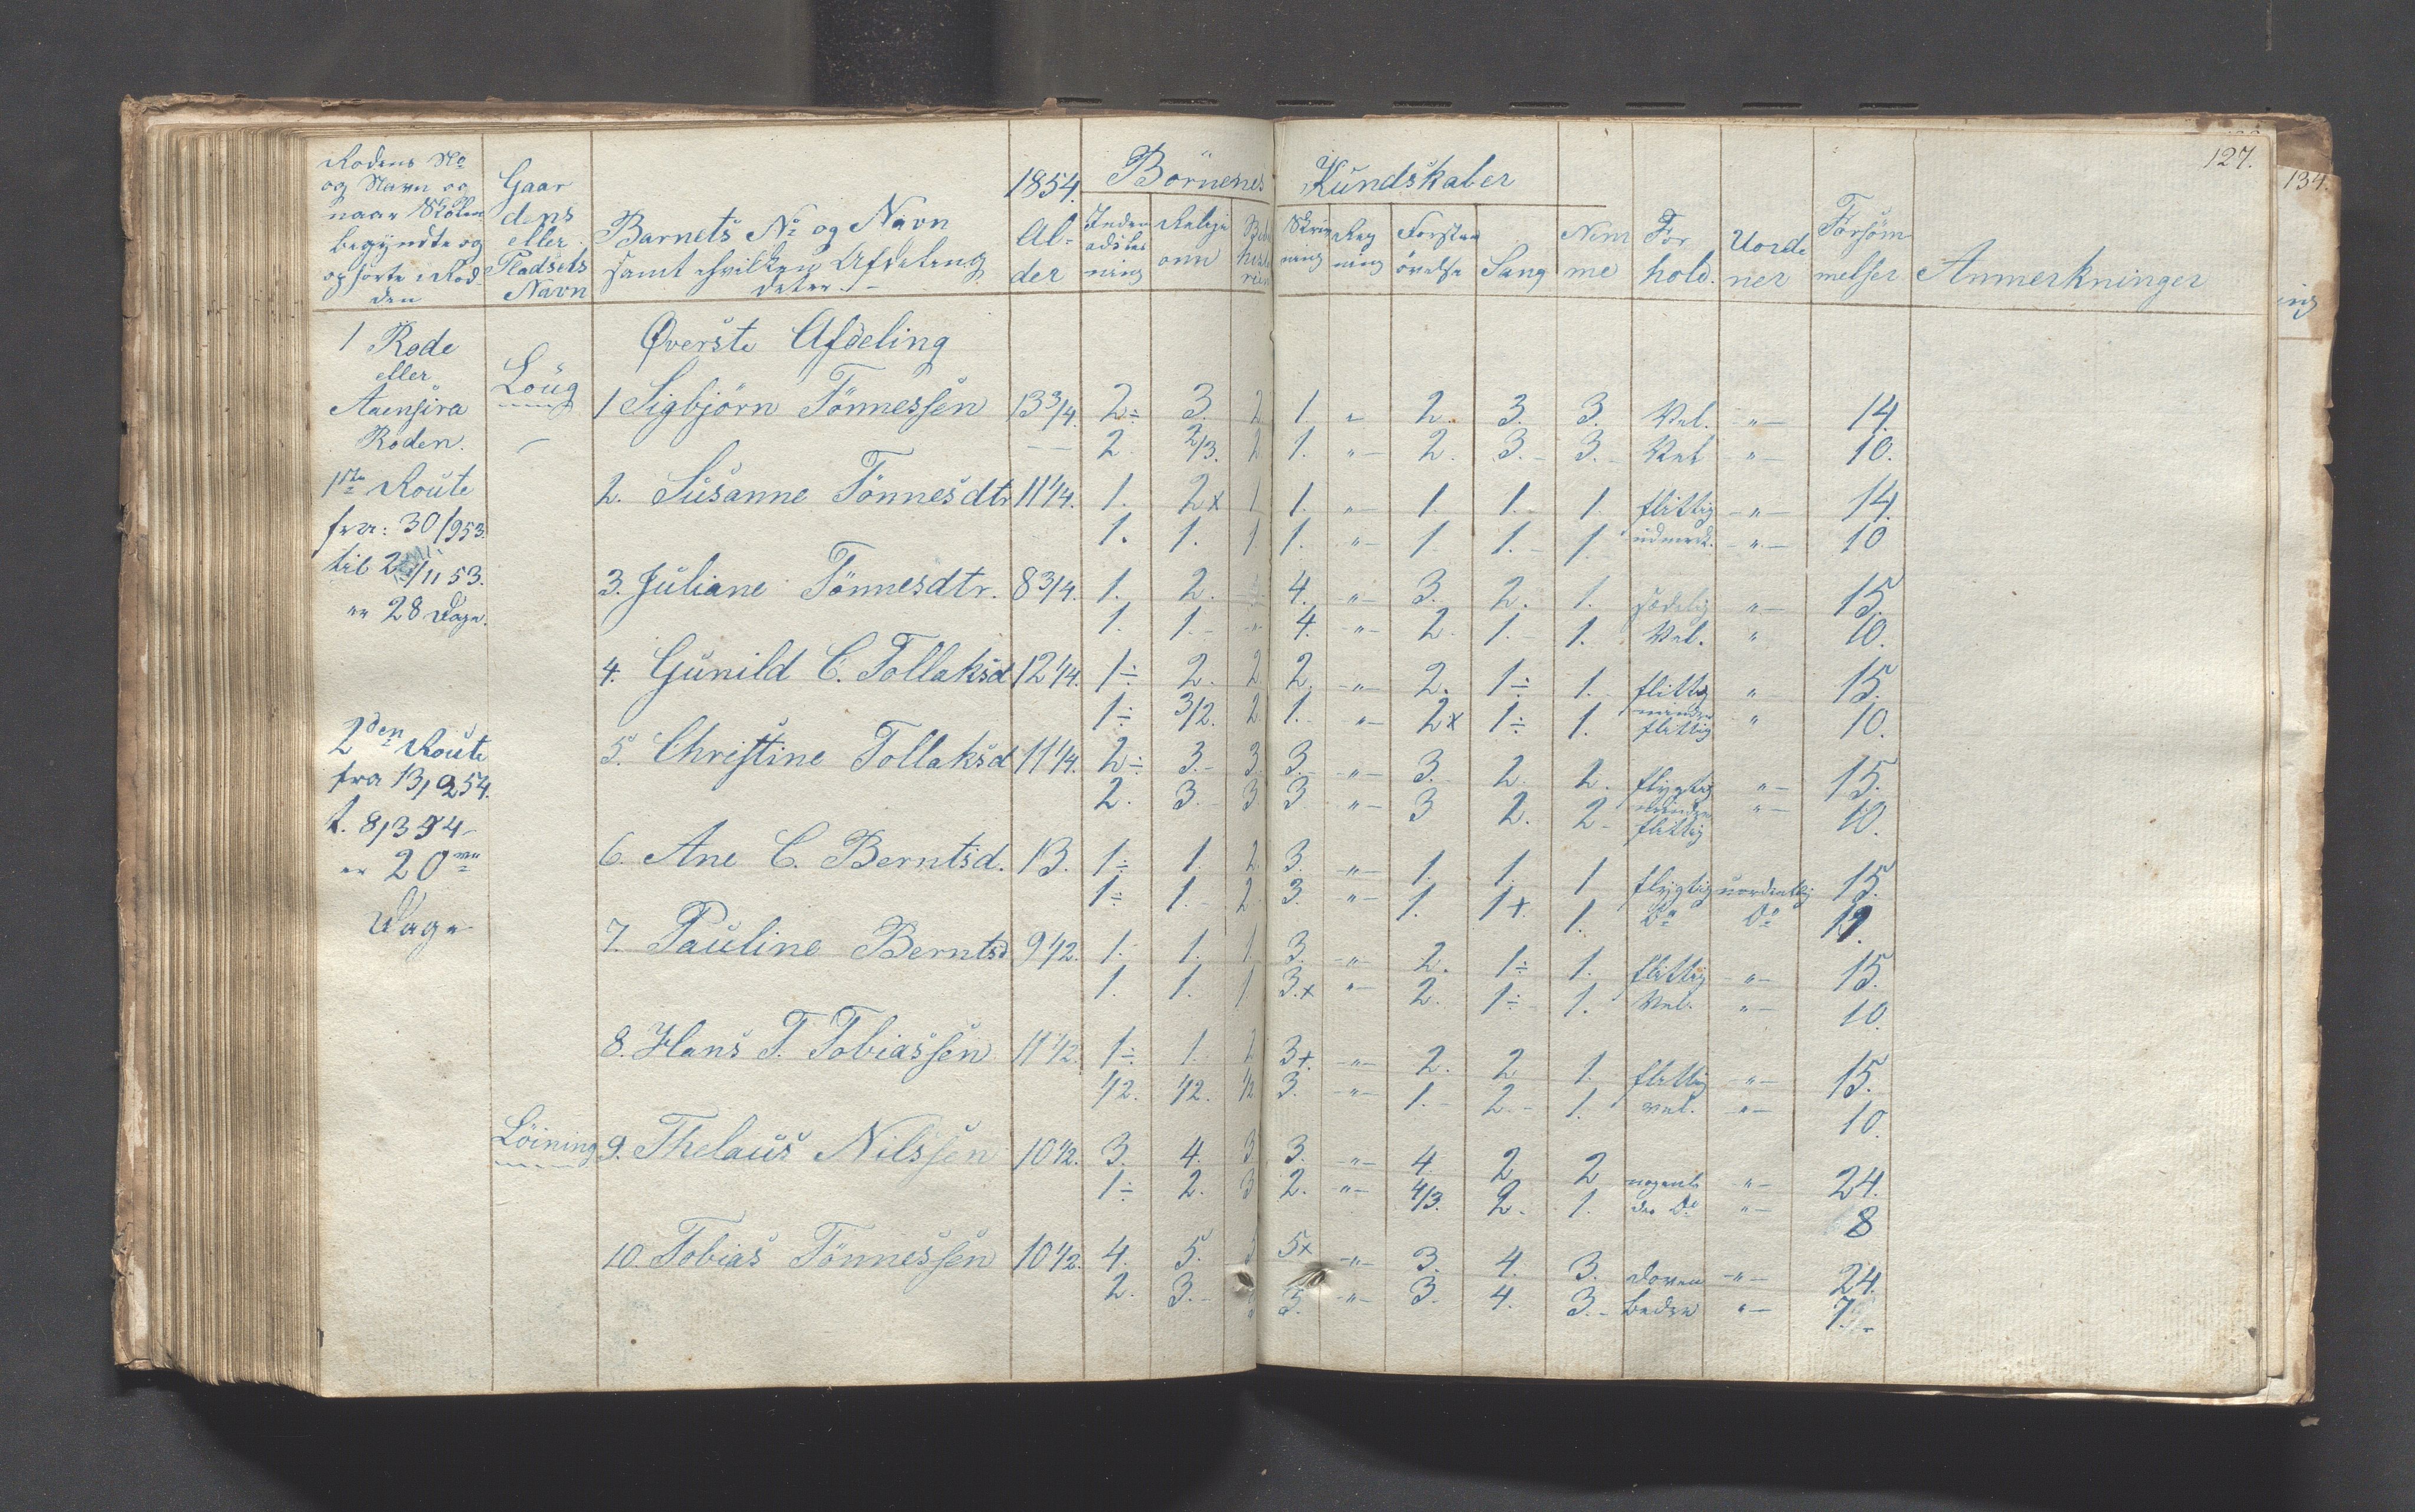 127.
134.
Rodens No
og Navn og
naar Skolen
begyndte og
ophørte i Rod-
den
Gaar
dens
eller
Pladsets
Navn
Barnets No og Navn
samt hvilken Afdeling
1854.
Al-
der
Börnenes Kundskaber
Inden
adslæs
ning
Religi
onn
Skriv
ning
Reg
ning
Forstan
övelse
Sang
Nem
me
For
hold.
Uorde
ner
Forsöm
melser
Anmerkninger
1 Rode
eller
Aaensira
Roden.
1ste Route
fra: 30/9 53.
til 2 /11 53.
er 28 Dage.
2den Route
fra 13/2 54.
t. 8/3 54
er 20
Dage
Øverste Afdeling
Loug 1 Sigbjörn Tönnessen 13 3/4. 2÷ 3. 2 1. " 2. 3. 3. Vel. " 14.
2. 2/3. 2 1. " 2. 3. 3. Vel " 10.
2. Susanne Tönnesdtr 11 1/4. 1. 2x 1 1. " 1. 1. 1. flittig " 14.
1. 1. 1 1. " 1. 1. 1. udmerk. " 10
3. Juliane Tönnesdtr. 8 3/4. 1. 2. " 4. " 3. 2. 1. sædelig " 15.
1. 1. " 4. " 2. 1. 1. Vel. " 10.
4. Gunild C. Tollaksd 12 1/4. 1÷ 2. 2 2. " 2. 1÷ 1. flittig " 15.
1÷ 3/2. 2 1. " 2x 1÷ 1. mindre flittig " 10.
5. Christine Tollaksd 11 1/4. 2÷ 3. 3 3. " 3. 2. 2. flygtig " 15.
2. 3. 3 3 " 3 2. 2 mindre flittig " 10.
6. Ane C. Berntsd. 13. 1÷ 1. 2 3. " 1. 1. 1 flygtig uordentlig 15.
1÷ 1. 2 3. " 1. 1+. 1. Do Do
7. Pauline Berntsd 9 1/2. 1. 1. 1 3. " 2. 1÷ 1. flittig " 15.
1. 1. 1 3.x " 2. 1÷ 1. Vel. " 10.
8. Hans T. Tobiassen 11 1/2. 1÷ 1. 2 3+. " 2. 2 1. flittig " 15.
1/2. 1/2. 1/2 3. " 1. 2. 1. vel. " 10.
Löining 9. Thelaus Nilssen 10 1/2. 3. 4. 3 3. " 4. 2 2 " 24.
1÷ 2. 3 2. " 4/3. 2. 1. " 8
10. Tobias Tönnessen 10 1/2. 4. 5. 5x " 3. 4. 3. doven " 24.
2. 3. 3 5. " 3. 4. 3. bedre " 7.